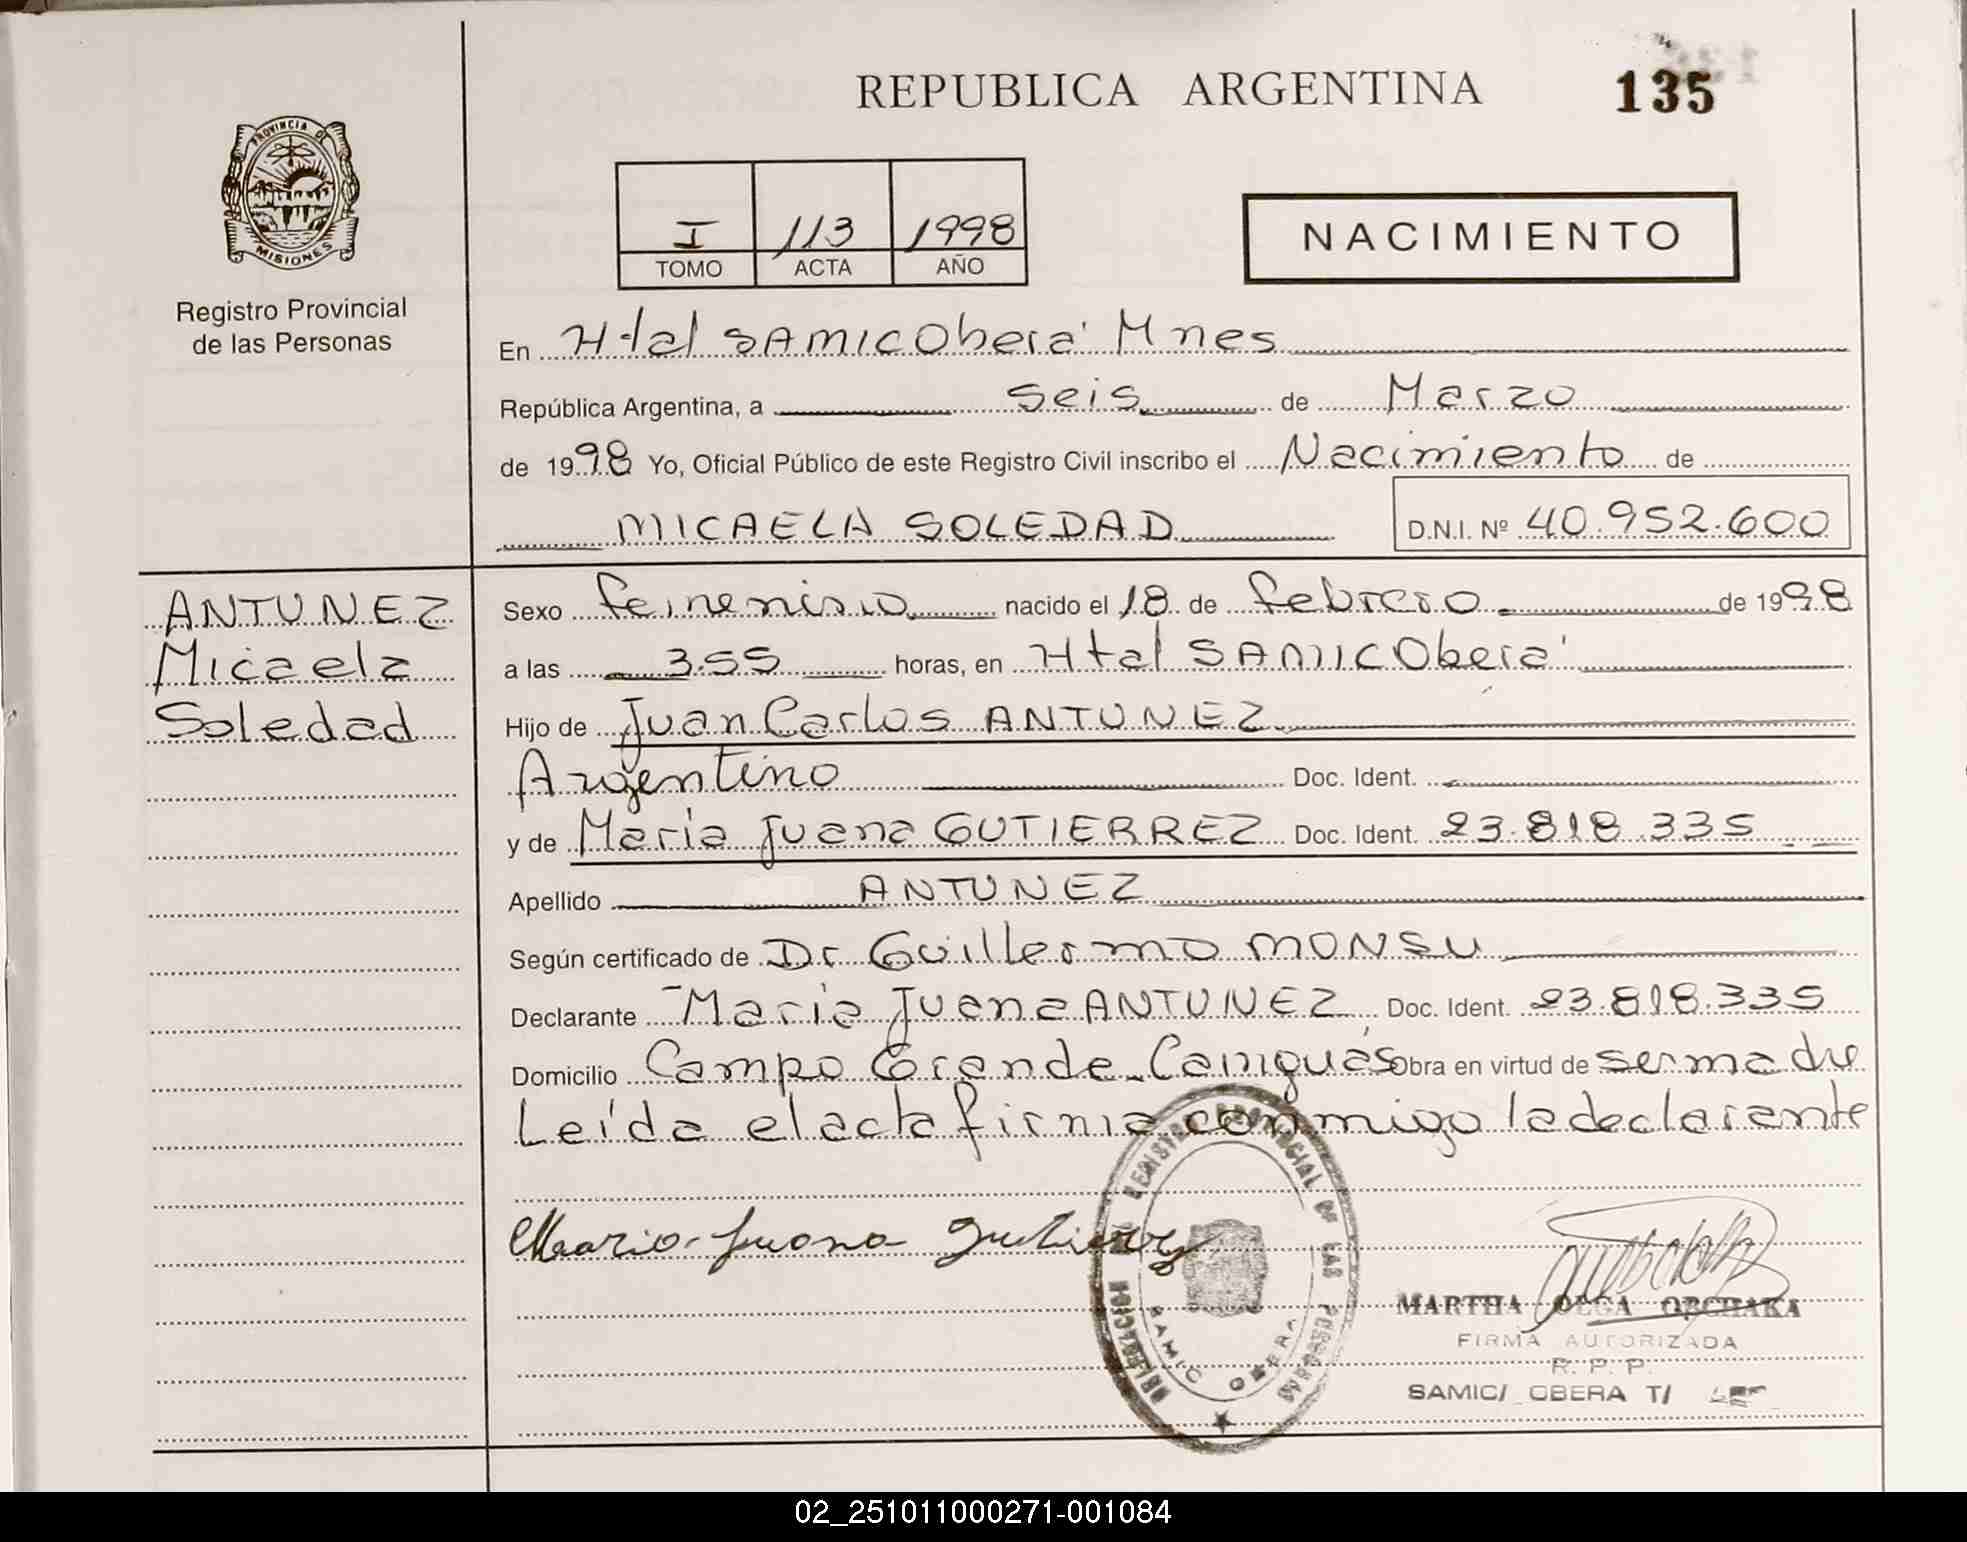 REPUBLICA ARGENTINA 135
PROVINCIA DE
MISIONES
Registro Provincial
de las Personas
I 113 1998
TOMO ACTA AÑO
NACIMIENTO
En H-tal SAMIC Oberá Mnes
República Argentina, a seis de Marzo
de 1998 Yo, Oficial Público de este Registro Civil inscribo el Nacimiento de
MICAELA SOLEDAD D.N.I. Nº 40.952.600
ANTUNEZ
Micaela
Soledad
Sexo femenino nacido el 18 de febrero de 1998
a las 3.55 horas, en Htal SAMIC Oberá
Hijo de Juan Carlos ANTUNEZ
Argentino Doc. Ident.
y de Maria Juana GUTIERREZ Doc. Ident. 23.818.335
Apellido ANTUNEZ
Según certificado de Dr Guillermo MONSU
Declarante Maria Juana ANTUNEZ Doc. Ident. 23.818.335
Domicilio Campo Grande Cainguás Obra en virtud de ser madre
Leída el acta firma conmigo la declarante
Maria Juana Gutierrez
DELEGACION REGISTRO PROVINCIAL DE LAS PERSONAS
SAMIC OBERA
MARTHA OLGA OBCHAKA
FIRMA AUTORIZADA
R. P. P.
SAMIC/ OBERA T/
02_251011000271-001084